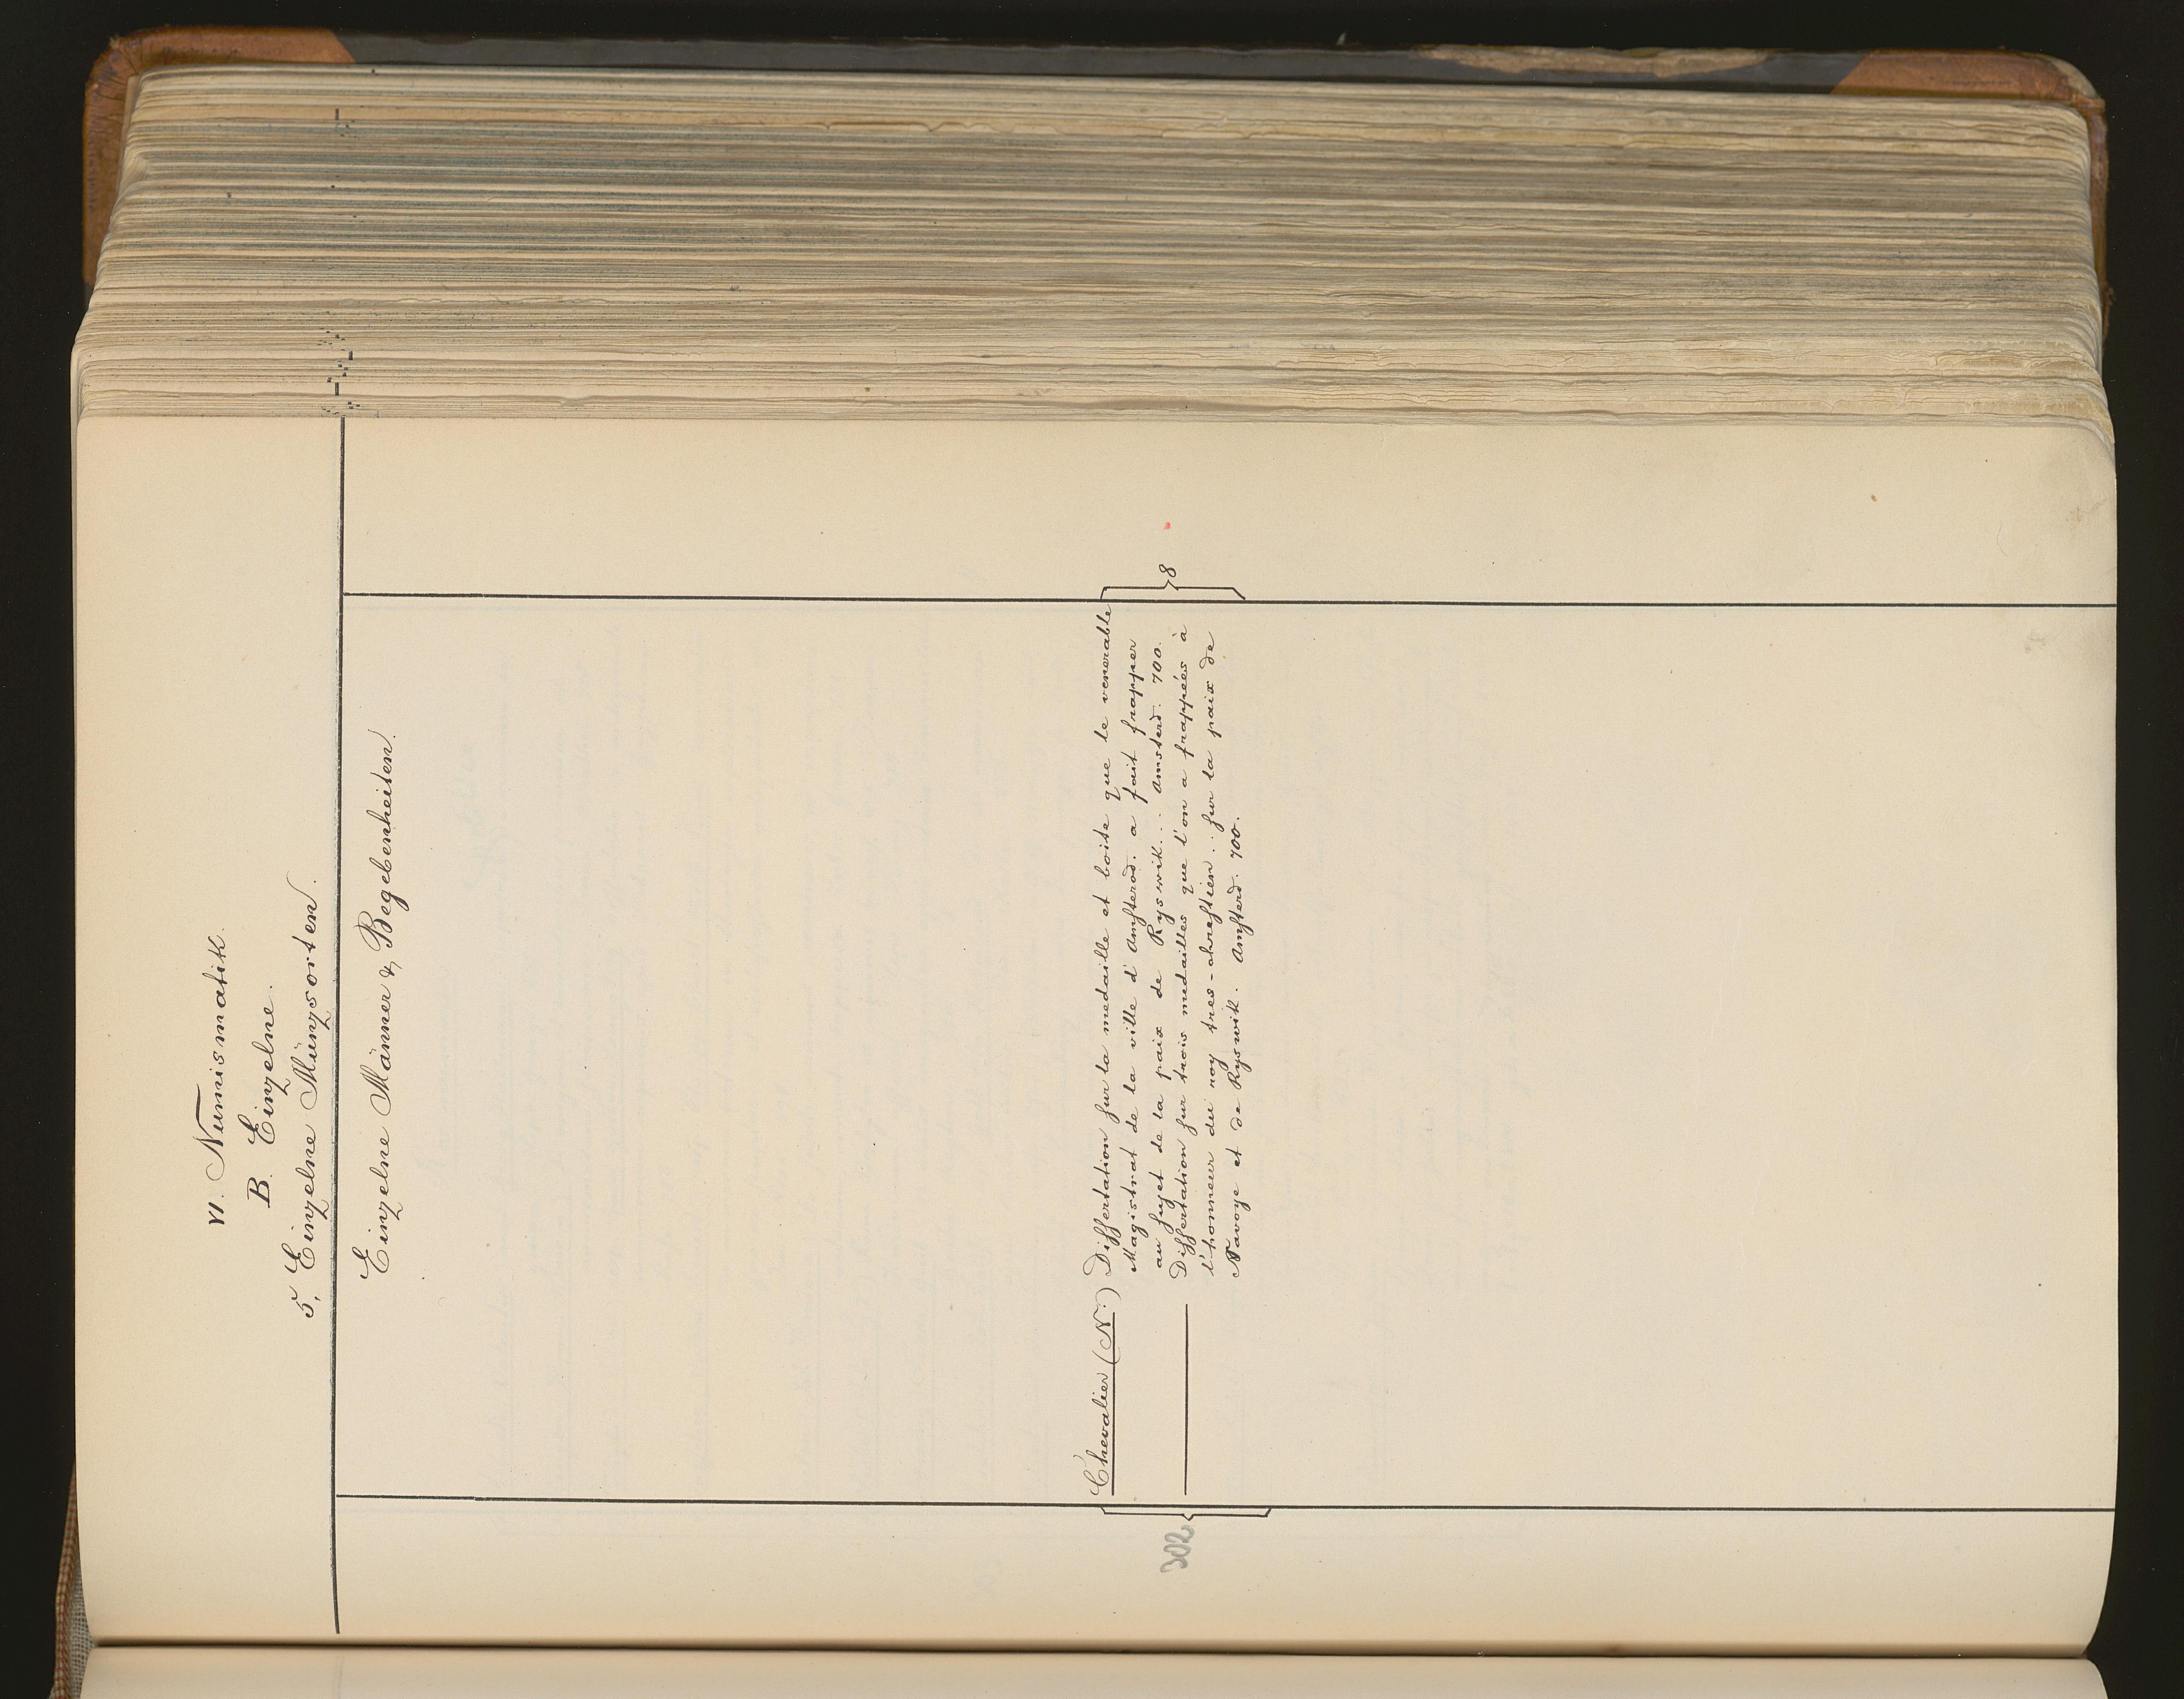 VI. Numismatik.
B. Einzelne.
5, Einzelne Münzsorten.
Einzelne Männer & Begebenheiten.
Chevalier (N.) Dissertation sur la medaille et boite que le venerable
Magistrat de la ville d'Amsterod. a fait frapper
au sujet de la paix de Ryswik... Amsterd. 700.
Dissertation sur trois medailles que l'on a frappées à
l'honneur du roy tres-chrestien.. sur la paix de
Savoye et de Ryswik. Amsterd. 700.
8
302